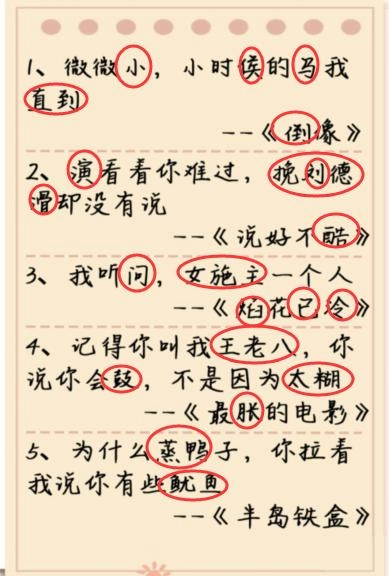 1、微微小，小时侯的马我
直到
--《倒像》
2、演看看你难过，挽刘德
滑却没有说
--《说好不酷》
3、我听问，女施主一个人
--《焰花已冷》
4、记得你叫我王老八，你
说你会鼓，不是因为太糊
--《最胀的电影》
5、为什么蒸鸭子，你拉看
我说你有些鱿鱼
--《半岛铁盒》